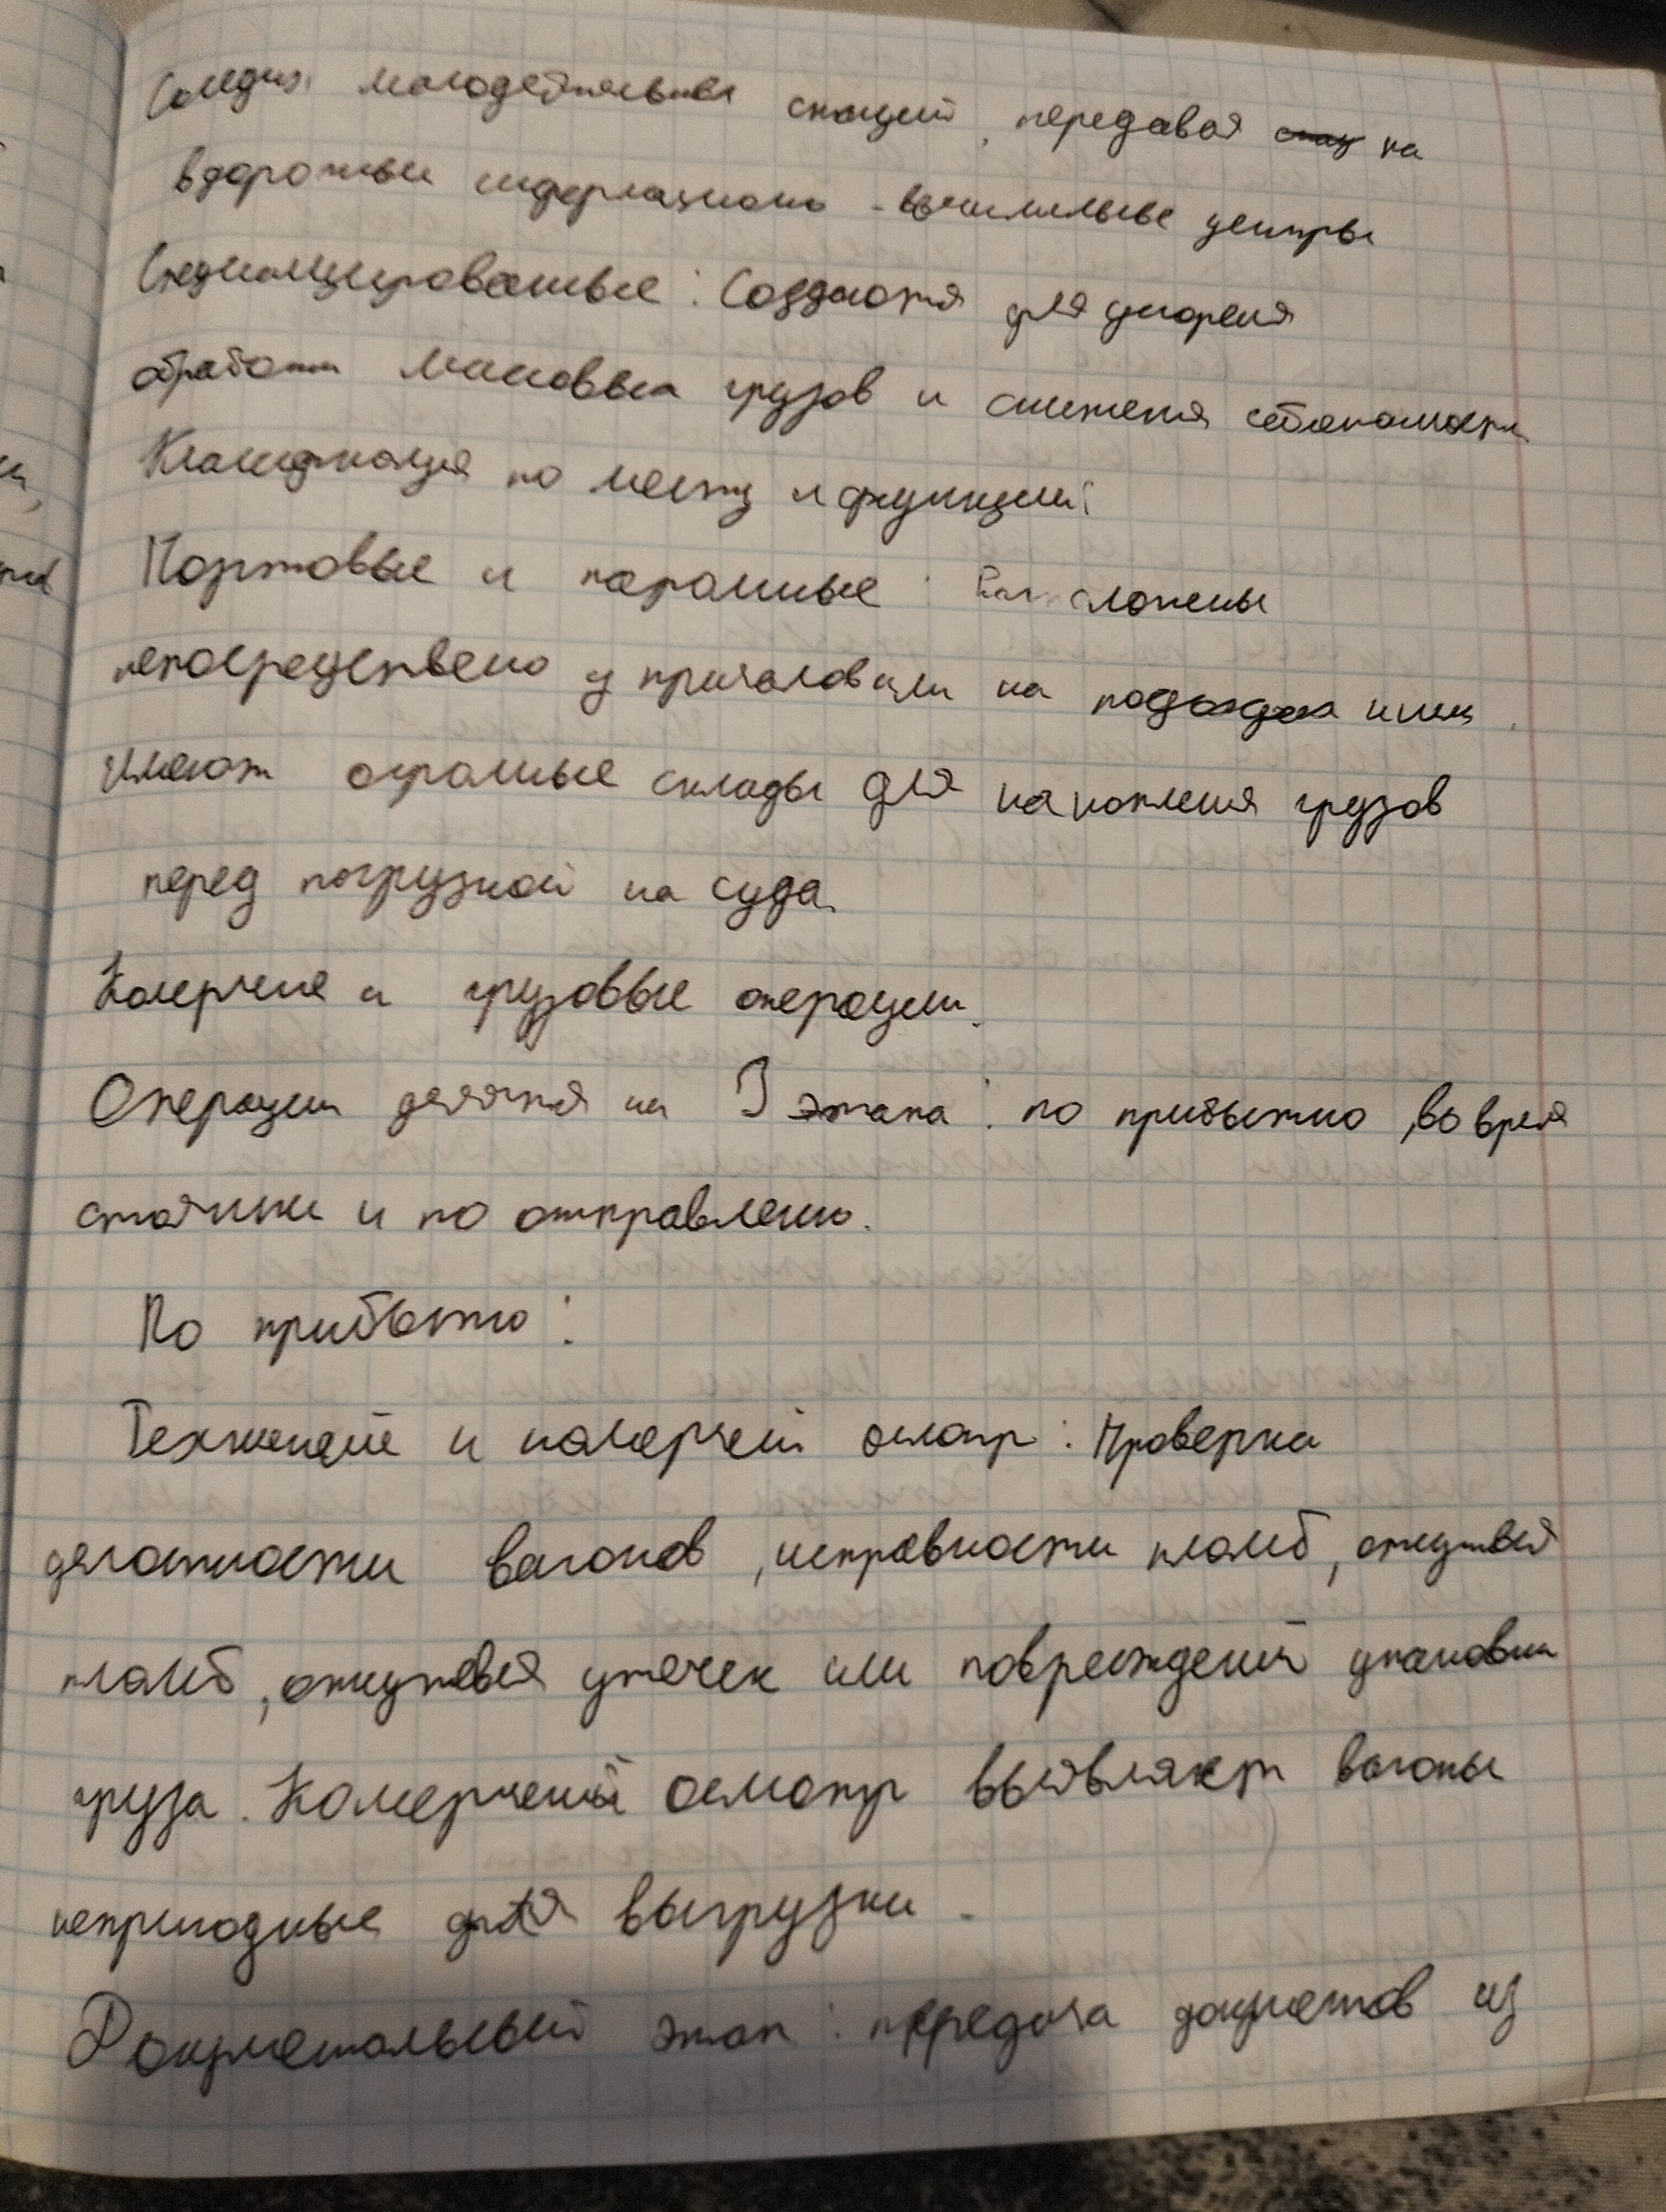 малодеятельных станций, передавая на
в дорожные информационо - вычислильные центры
Специолицированые : Создаются для ускорения
обработки массовых грузов и снижения себестоимости
Класификация по месту и функции:
Портовые и паромные : Расположены
непосредствено у причалов или на подьздах к ним
имеют огромные склады для накопления грузов
перед погрузкой на суда.
Комерчие и грузовые операции.
Операции делятся на 3 этапа : по прибытию, во время
стоянки и по отправлению.
По прибытию :
Технический и комерчий осмотр : Проверка
вагонов, исправности пломб, отсутвия
пломб, отсутвия утечек или повреждений упаковки
груза. Комерчений осмотр выявляет вагоны
непригодные для выгрузки.
Документальный этап : передача документов из